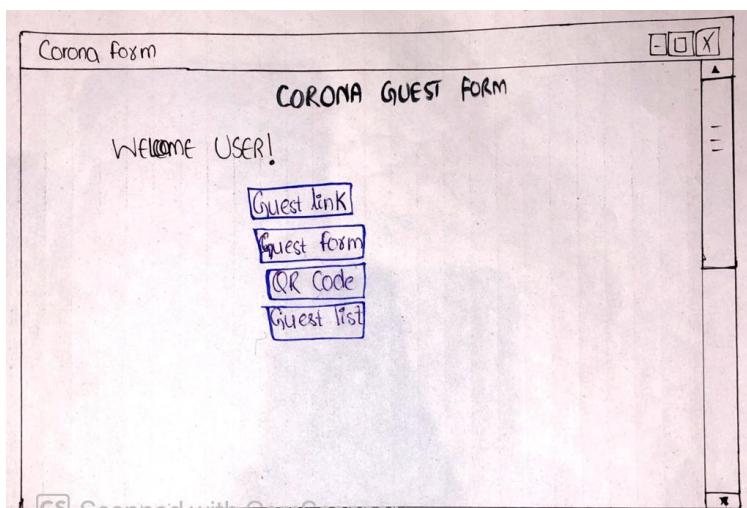 Corona form
CORONA GUEST FORM
WELCOME USER!
Guest link
Guest form
QR Code
Guest list
CS Scanned with